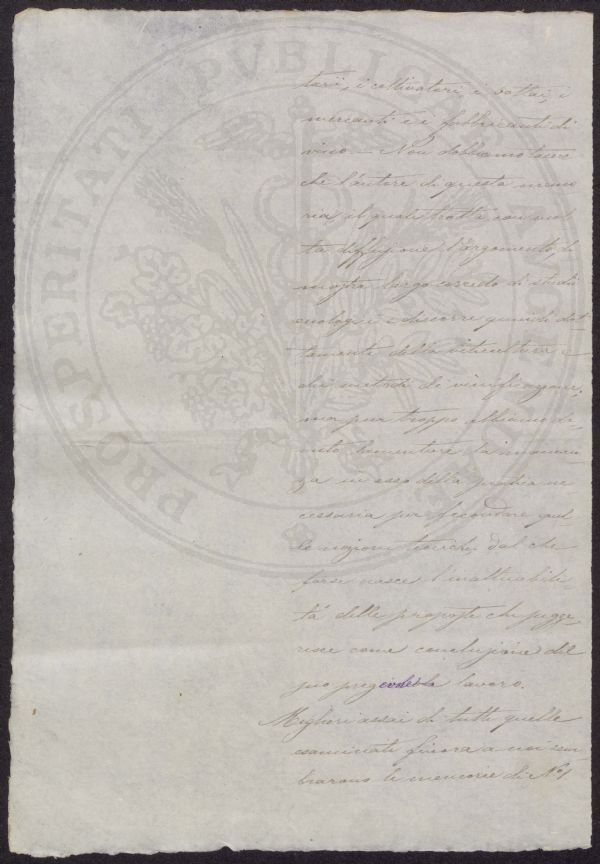 tori, i coltivatori i bottai, i
mercanti e i fabbricanti di
vino. — Non dobbiamo tacere
che l'autore di questa memo
ria il quale tratta con mol
ta diffusione l'argomento, di
mostra largo corredo di studi
enologici e discorre quindi dot
tamente della viticultura e
dei metodi di vinificazione,
ma pur troppo abbiamo do
vuto lamentare la mancan
za in esso della pratica ne
cessaria per fecondare quel
le nozioni teoriche, dal che
forse nasce l'inattuabili
tà delle proposte che sugge
risce come conclusione del
suo pregevole lavoro.
Migliori assai di tutte quelle
esaminate finora a noi sem
brarono le memorie di N° 1
PROSPERITATI PVBLICAE